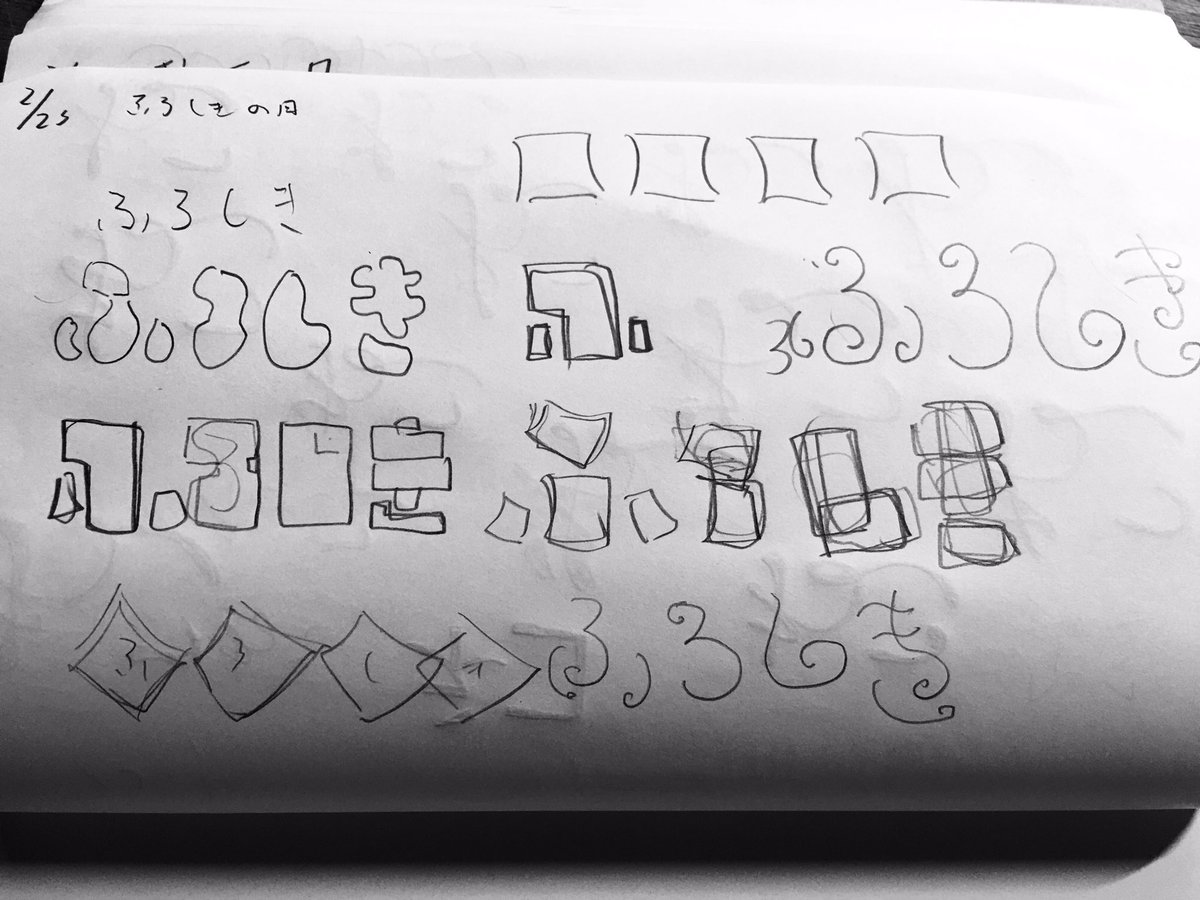 2/23 ふろしきの日
ふろしき
ふろしき ふ ふろしき
ふろしき ふろしき
ふろしき ふろしき